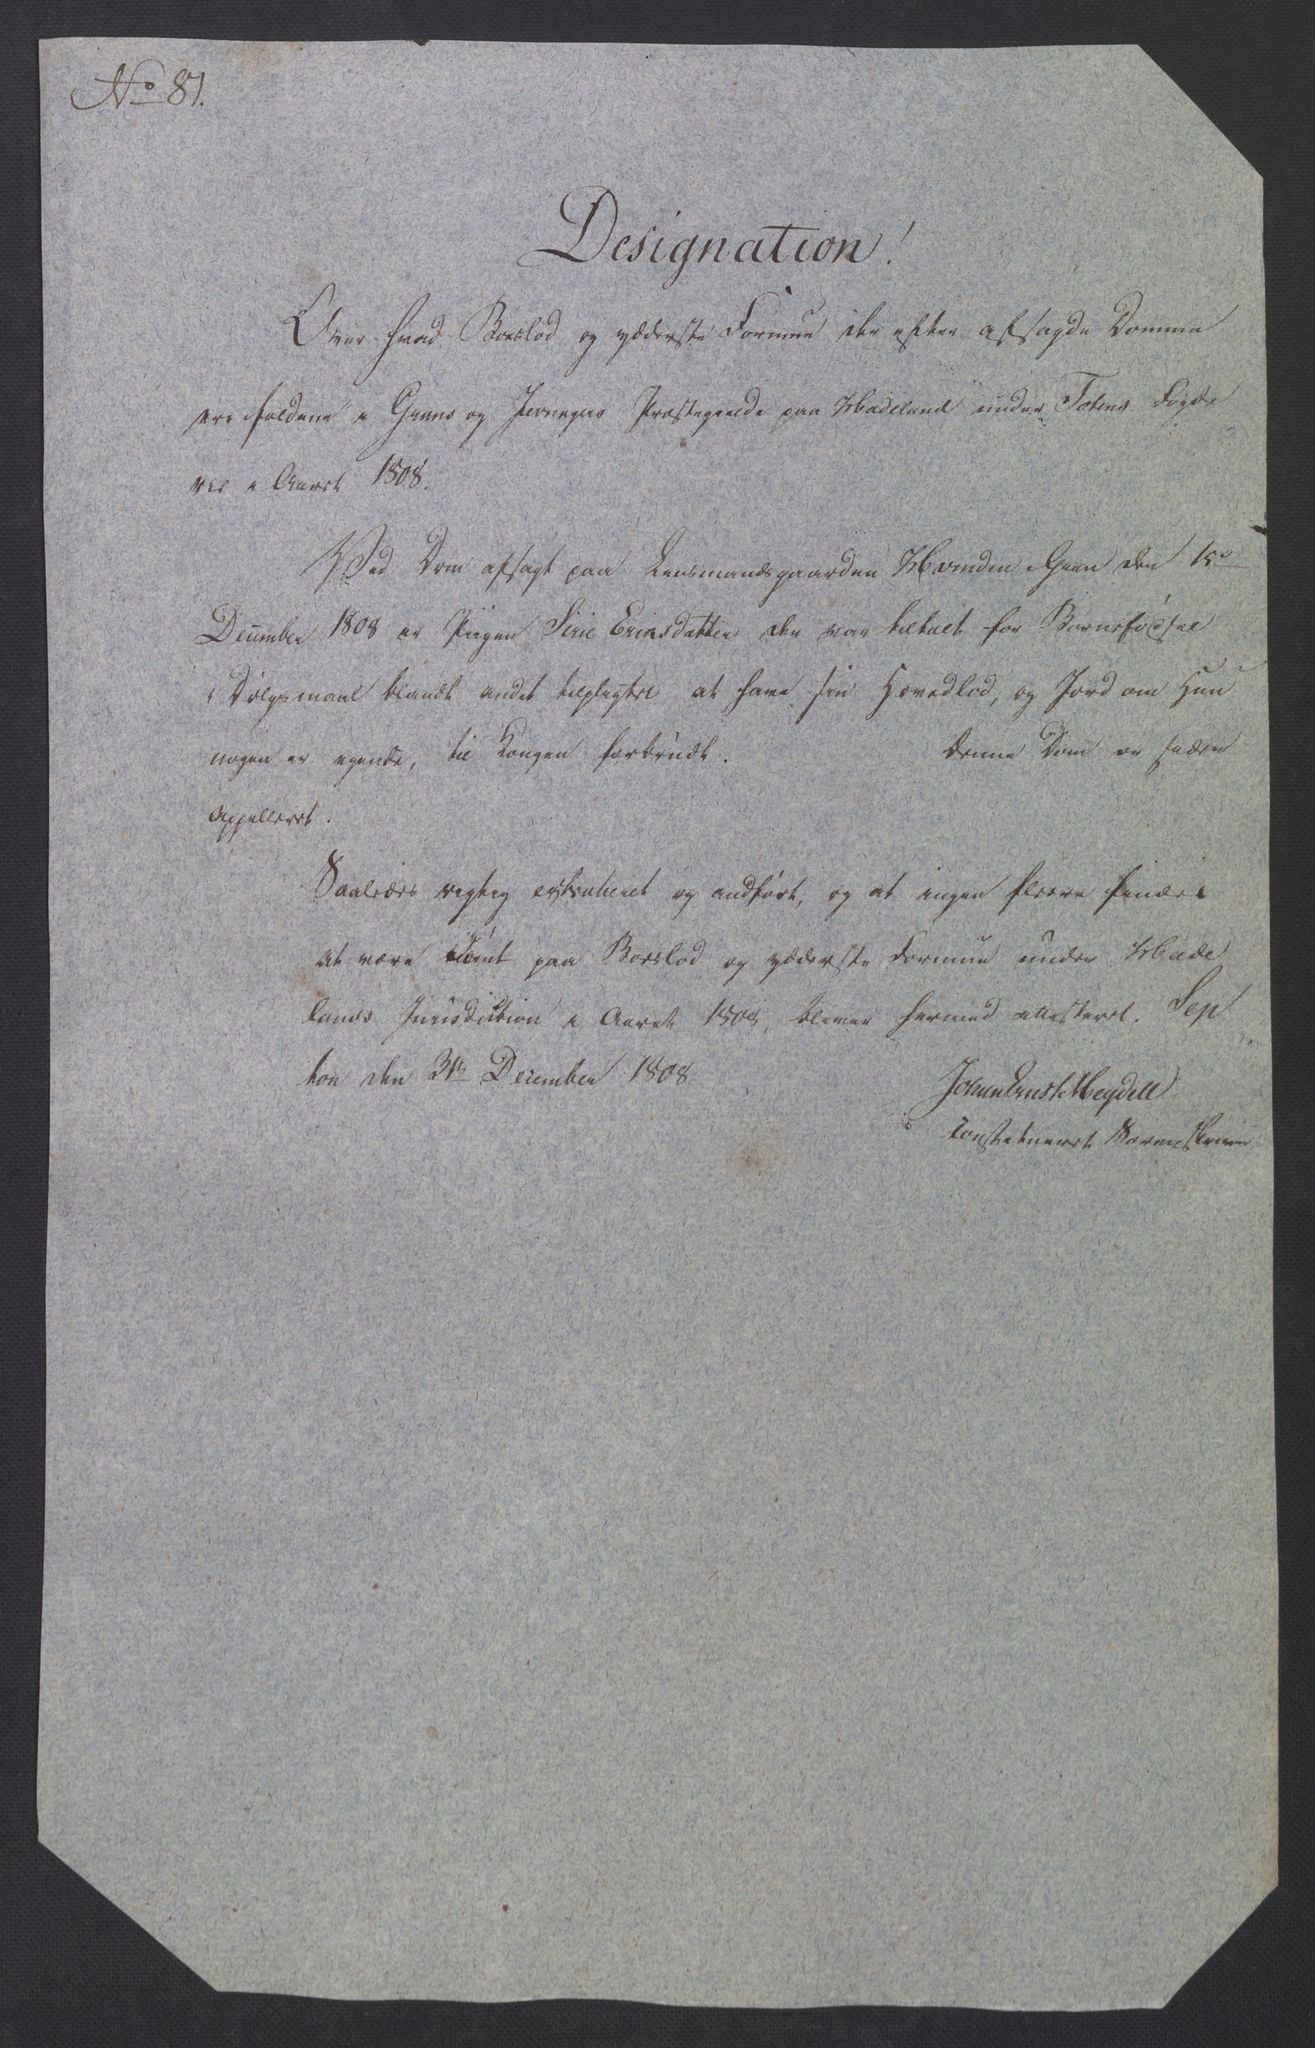 No 87.
Designation!
Over hvad Boeslod og yderste Formue der efter afsagde Domme
ere faldene i Grans og Jevnagers Præstegielde paa Hadeland under Totens Fogde
rie i Aaret 1808.
Ved Dom afsagt paa Lensmandsgaarden Hvinden i Gran den 15de
December 1808 er Piigen Siri Ericsdatter der var tiltalt for Barnefødsel
i Dølgsmaal blandt andet tilpligtet at have sin Hovedlod, og Jord om Hun
nogen er eyende, til Kongen forbrudt. Denne Dom er
Appelleret.
Saaledes rigtig extraheret og andført, og at ingen fleere findes
at være dømt paa Boeslod og yderste Formue under Hade
lands Jurisdiction i Aaret 1808, bliver hermed attesteret. Sep
ton den 31te December 1808
Johan Ernst Meydell
Constitueret Sorenskriver